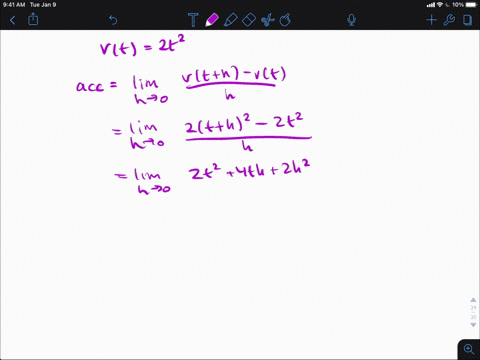 9:41 AM Tue Jan 9
10%
v(t) = 2t²
acc = lim h→0 (v(t+h) − v(t))/h
= lim h→0 (2(t+h)² − 2t²)/h
= lim h→0 2t² + 4th + 2h²